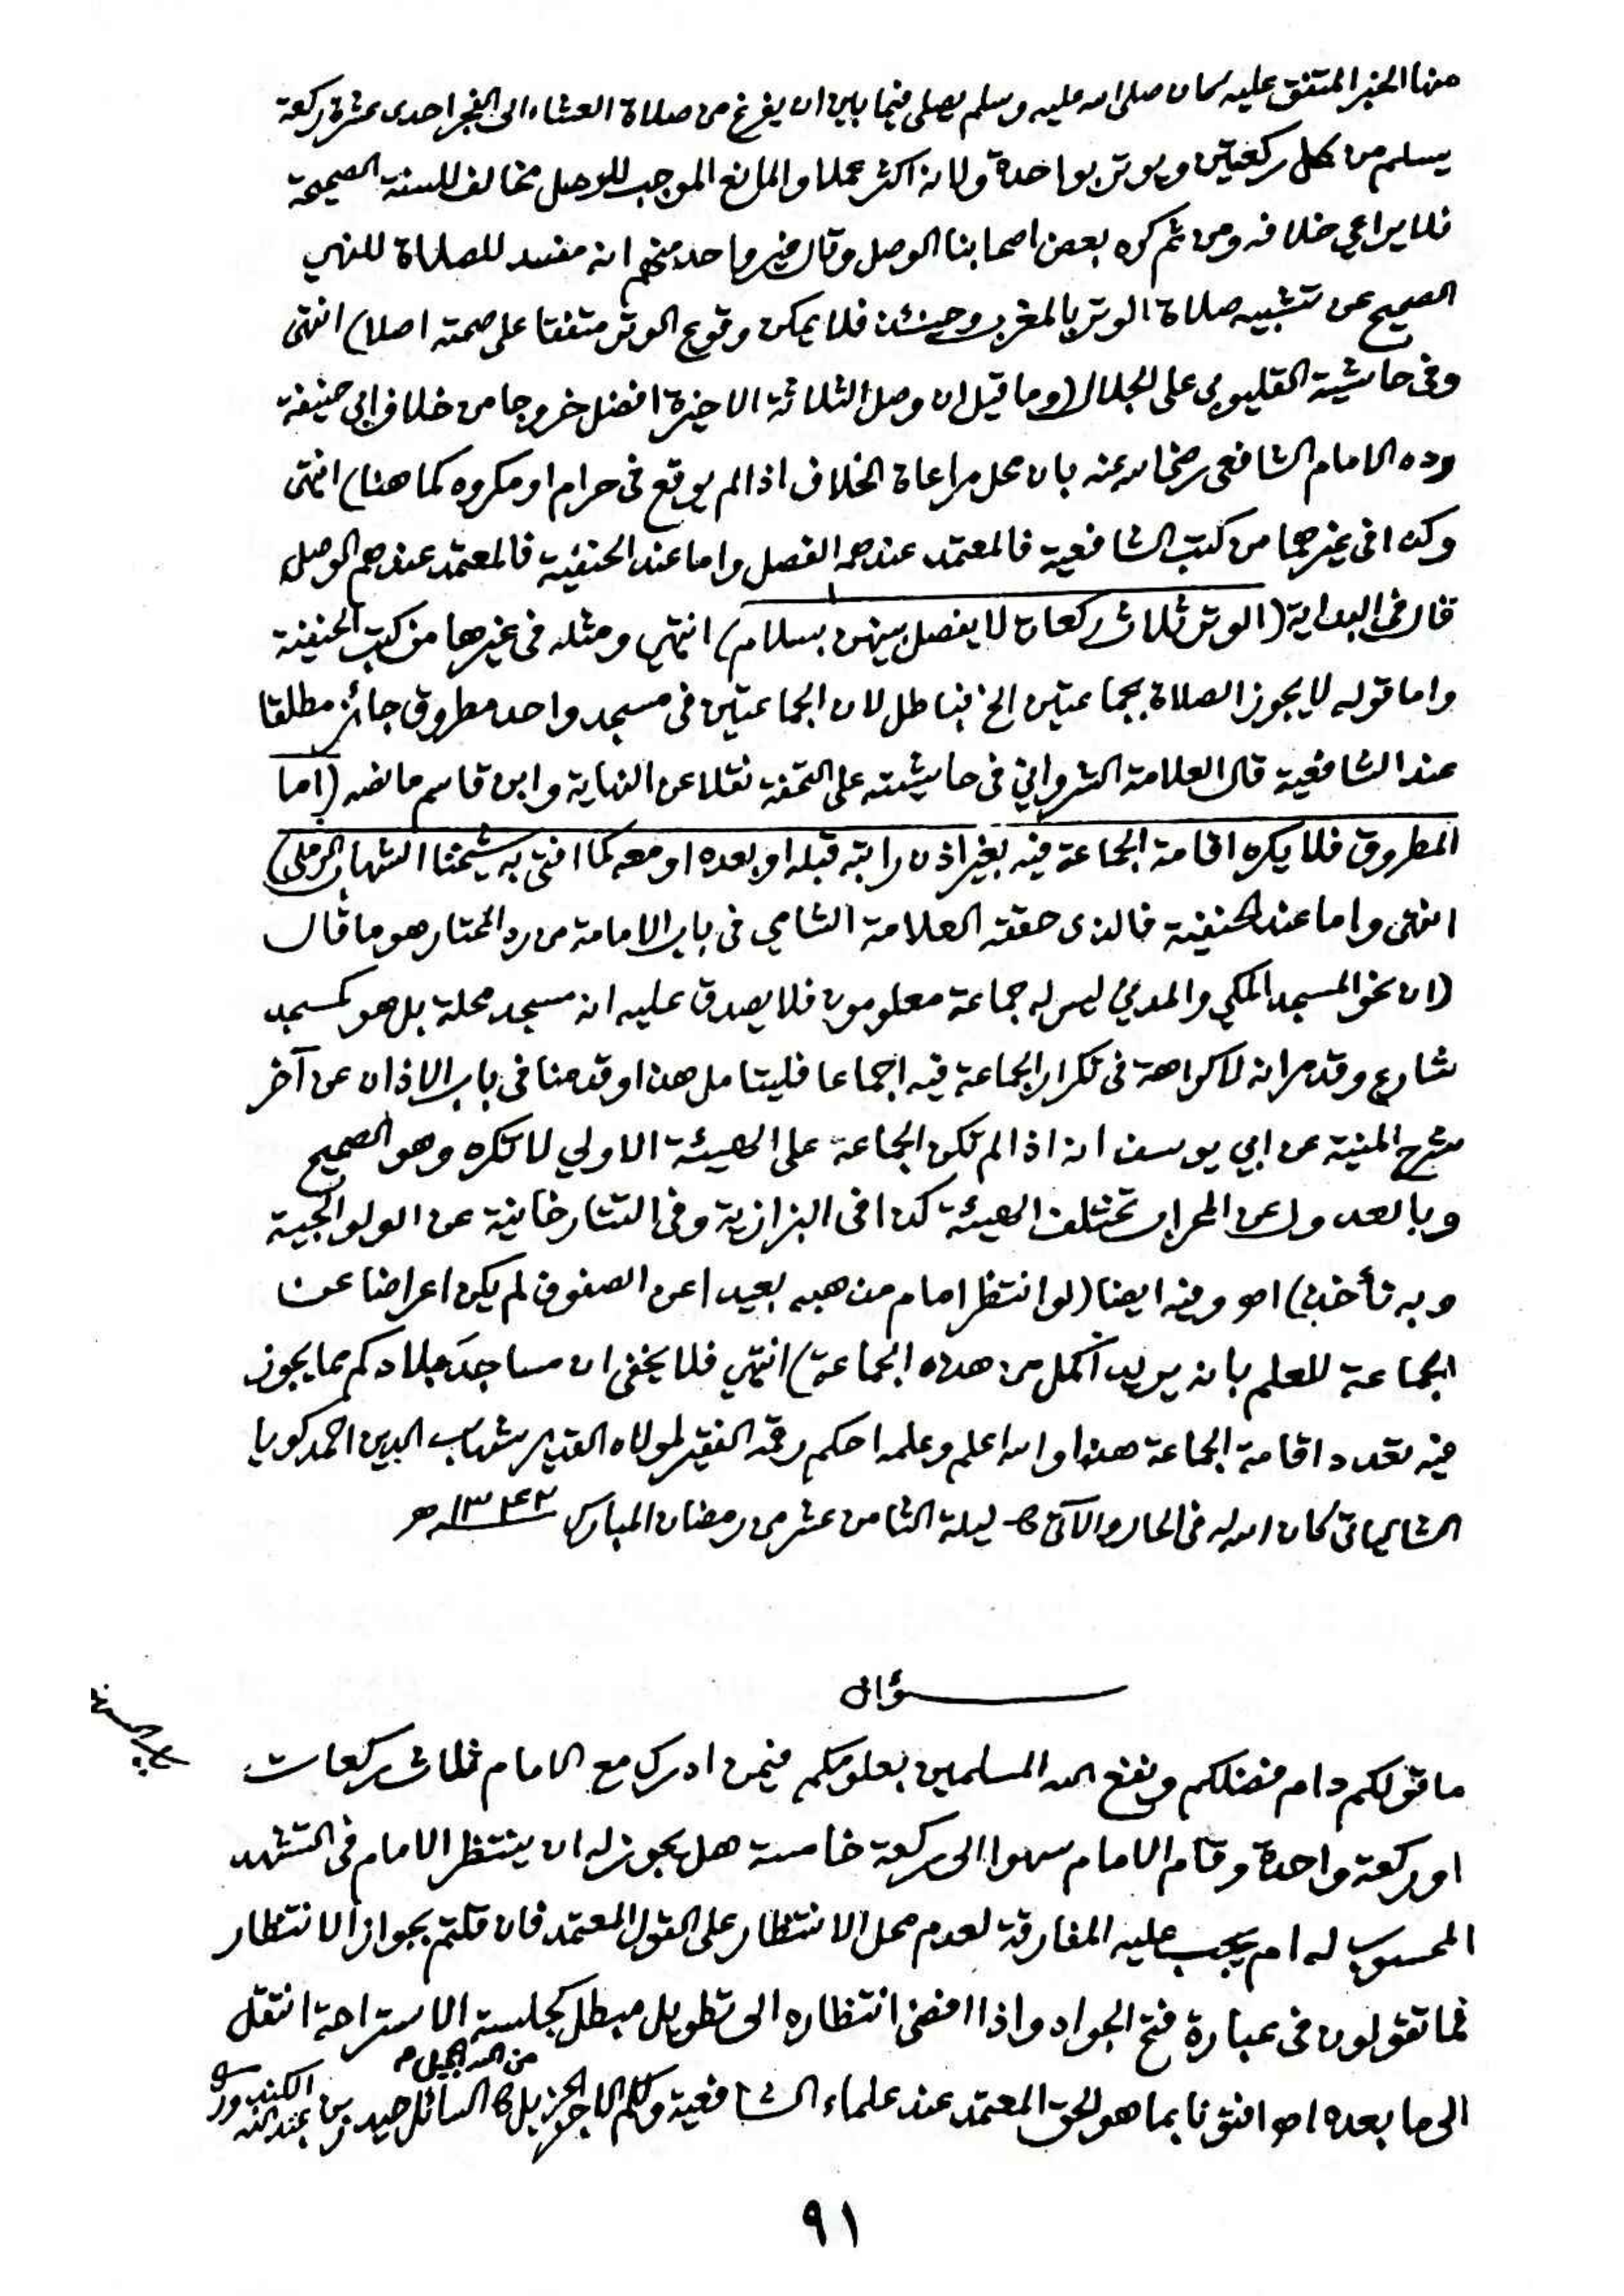 منها الخبر المتفق عليه كان صلى الله عليه وسلم يصلى فيما بين ان يفرغ من صلاة العشاء الى الفجر احدى عشرة ركعة
يسلم من كل ركعتين ويوتر بواحدة ولانه اكثر عملا والمانع الموجب للوصل مخالف للسنة الصحيحة
فلا يراعي خلافه ومن ثم كره بعض اصحابنا الوصل وقال غير واحد منهم انه مفسد للصلاة للنهي
الصحيح عن تشبيه صلاة الوتر بالمغرب وحينئذ فلا يمكن وقوع الوتر متفقا على صحته اصلا) انتهى
وفى حاشية القليوبي على الجلال (وما قيل ان وصل الثلاثة الاخيرة افضل خروجا من خلاف ابي حنيفة
رده الامام الشافعي رضي الله عنه بان محل مراعاة الخلاف اذا لم يوقع فى حرام او مكروه كما هنا) انتهى
وكذا فى غيرهما من كتب الشافعية فالمعتمد عندهم الفصل واما عند الحنفية فالمعتمد عندهم الوصل
قال فى البداية (الوتر ثلاث ركعات لا يفصل بينهن بسلام) انتهي ومثله فى غيرها من كتب الحنفية
واما قوله لا يجوز الصلاة بجماعتين الخ فباطل لان الجماعتين فى مسجد واحد مطروق جائز مطلقا
عند الشافعية قال العلامة الشرواني فى حاشيته على التحفة نقلا عن النهاية وابن قاسم ما نصه (اما
المطروق فلا يكره اقامة الجماعة فيه بغير اذن راتبه قبله او بعده او معه كما افتى به شيخنا الشهاب الرملي)
انتهى واما عند الحنفية فالذى حققه العلامة الشامي فى باب الامامة من رد المحتار هو ما قال
(ان نحو المسجد المكي والمدني ليس له جماعة معلومون فلا يصدق عليه انه مسجد محلة بل هو كمسجد
شارع وقد مر انه لا كراهة فى تكرار الجماعة فيه اجماعا فليتامل هذا وقدمنا فى باب الاذان عن آخر
شرح المنية عن ابي يوسف انه اذا لم تكن الجماعة على الهيئة الاولي لا تكره وهو الصحيح
وبالعدول عن المحراب تختلف الهيئة كذا فى البزازية وفى التتارخانية عن الولوالجية
وبه نأخذ) اهـ وفيه ايضا (لو انتظر امام مذهبه بعيدا عن الصفوف لم يكن اعراضا عن
الجماعة للعلم بانه يريد أكمل من هذه الجماعة) انتهي فلا يخفى ان مساجد بلادكم مما يجوز
فيه تعدد اقامة الجماعة هذا والله اعلم وعلمه احكم رقمه الفقير لمولاه القدير شهاب الدين احمد كويا
الشالياتى كان الله له فى الحال والآتى ليلة الثامن عشر من رمضان المبارك ١٣٤٢هـ
سؤال
ما قولكم دام فضلكم ونفع الله المسلمين بعلومكم فيمن ادرك مع الامام ثلاث ركعات
او ركعة واحدة وقام الامام سهوا الى ركعة خامسة هل يجوز له ان ينتظر الامام فى التشهد
المحسوب له ام يجب عليه المفارقة لعدم محل الانتظار على القول المعتمد فان قلتم بجواز الانتظار
فما تقولون فى عبارة فتح الجواد واذا افضى انتظاره الى تطويل مبطل كجلسة الاستراحة انتقل
الى ما بعده اهـ افتونا بما هو الحق المعتمد عند علماء الشافعية ولكم الاجر الجزيل من الله الجميل السائل حيدر بن عبد الله
٩١